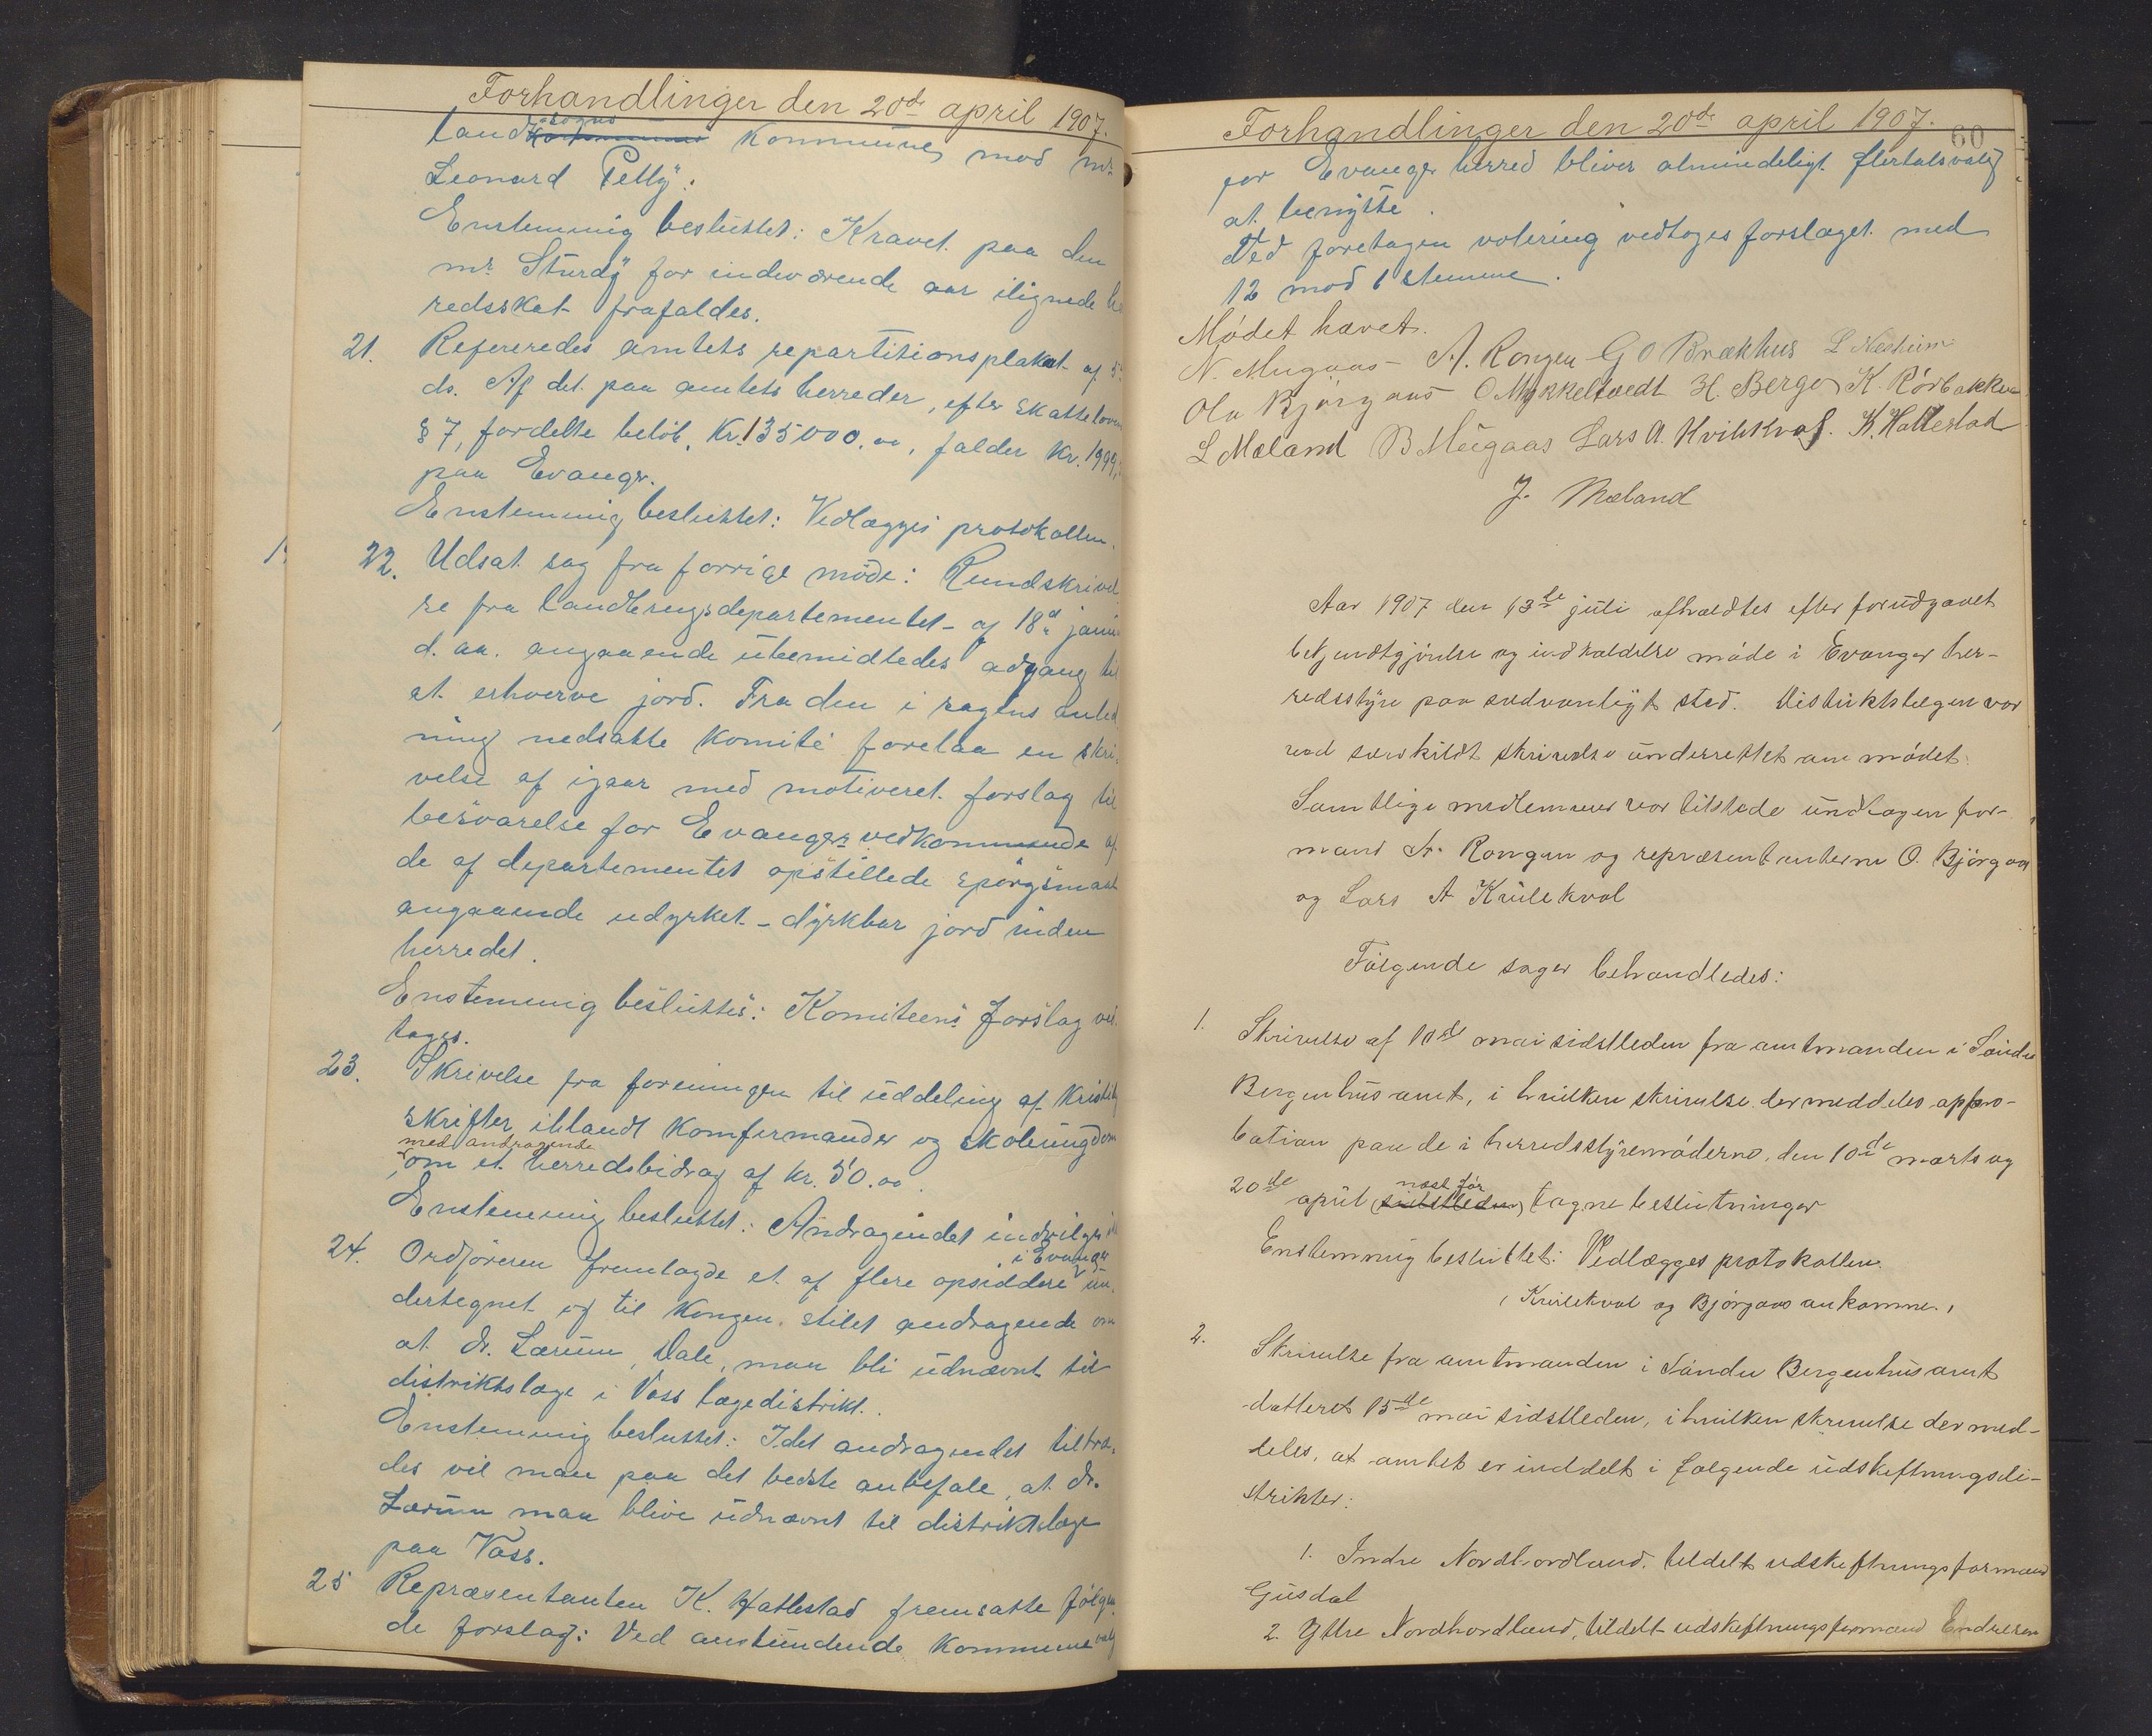 Forhandlinger den 20de april 1907.
land sogns kommune mod mr.
Leonard Petty".
Enstemmig besluttet: Kravet paa den
mr. Sturdy for indeværende aar ilignede her
redsskat frafaldes.
21. Refereredes amtets repartitionsplakat af 5te
ds. Af det paa amtets herreder, efter skatteloven
§ 7, fordelte beløb, Kr. 135000.00, falder kr. 1999,
paa Evanger.
Enstemmig besluttet: Vedlægges protokollen.
22. Udsat sag fra forrige møde: Rundskrivel
se fra landbrugsdepartementet af 18de janu
d. aa. angaaende ubemidledes adgang til
at erhverve jord. Fra den i sagens anled
ning nedsatte komité forelaa en skri-
velse af igaar med motiveret forslag til
besvarelse for Evangers vedkommende af
de af departementet opstillede spørgsmaal
angaaende udyrket dyrkbar jord inden
herredet.
Enstemmig besluttes: Komiteens forslag ved
tages.
23. Skrivelse fra foreningen til uddeling af kristelig
skrifter iblandt komfirmander og skoleungdom
med andragende
om et herredsbidrag af kr. 50.00.
Enstemmig besluttet: Andragendet indvilges ik
24. Ordføreren fremlagde et af flere opsiddere i Evanger un-
dertegnet og til Kongen stilet andragende om
at dr. Lærum, Dale, maa bli udnævnt til
distriktslæge i Voss lægedistrikt.
Enstemmig besluttet: Idet andragendet tiltræ-
des vil man paa det bedste anbefale, at dr.
Lærum maa blive udnævnt til distriktslæge
paa Voss.
25 Repræsentanten K. Hattestad fremsatte følgen
de forslag: Ved anstundende kommunevalg
Forhandlinger den 20de april 1907.
60
for Evanger herred bliver almindeligt flertalsvalg
at benytte.
Ved foretagen votering vedtoges forslaget med
12 mod 1 stemme.
Mødet hævet.
N. Mugaas A. Rongen G O Brækhus L Nesheim
Ola Bjørgaas O Mykkeltvedt H. Berge K. Rørbakken
L Mæland B Mügaas Lars A. Kvilekval. K. Hattestad
J. Mæland
Aar 1907 den 13de juli afholdtes efter forudgaaet
bekjendtgjørelse og indkaldelse møde i Evanger her-
redsstyre paa sedvanligt sted. Distriktslægen var
ved særskildt skrivelse underrettet om mødet.
Samtlige medlemmer var tilstede undtagen for-
mand A. Rongen og repræsentanterne O. Bjørgaas
og Lars A Kvilekval
Følgende sager behandledes:
1. Skrivelse af 10de mai sidstleden fra amtmanden i Søndre
Bergenhus amt, i hvilken skrivelse der meddeles appro-
bation paa de i herredsstyremøderne, den 10de marts og
næst før
20de april sidstleden, tagne beslutninger
Enstemmig besluttet: Vedlægges protokollen.
(Kvilekval og Bjørgaas ankomne.)
2. Skrivelse fra amtmanden i Søndre Bergenhus amt
datteret 15de mai sidstleden, i hvilken skrivelse der med-
deles, at amtet er inddelt i følgende udskiftningsdi-
strikter:
1. Indre Nordhordland, tildelt udskiftningsformand
Gusdal
2. Yttre Nordhordland, tildelt udskiftningsformand Endresen